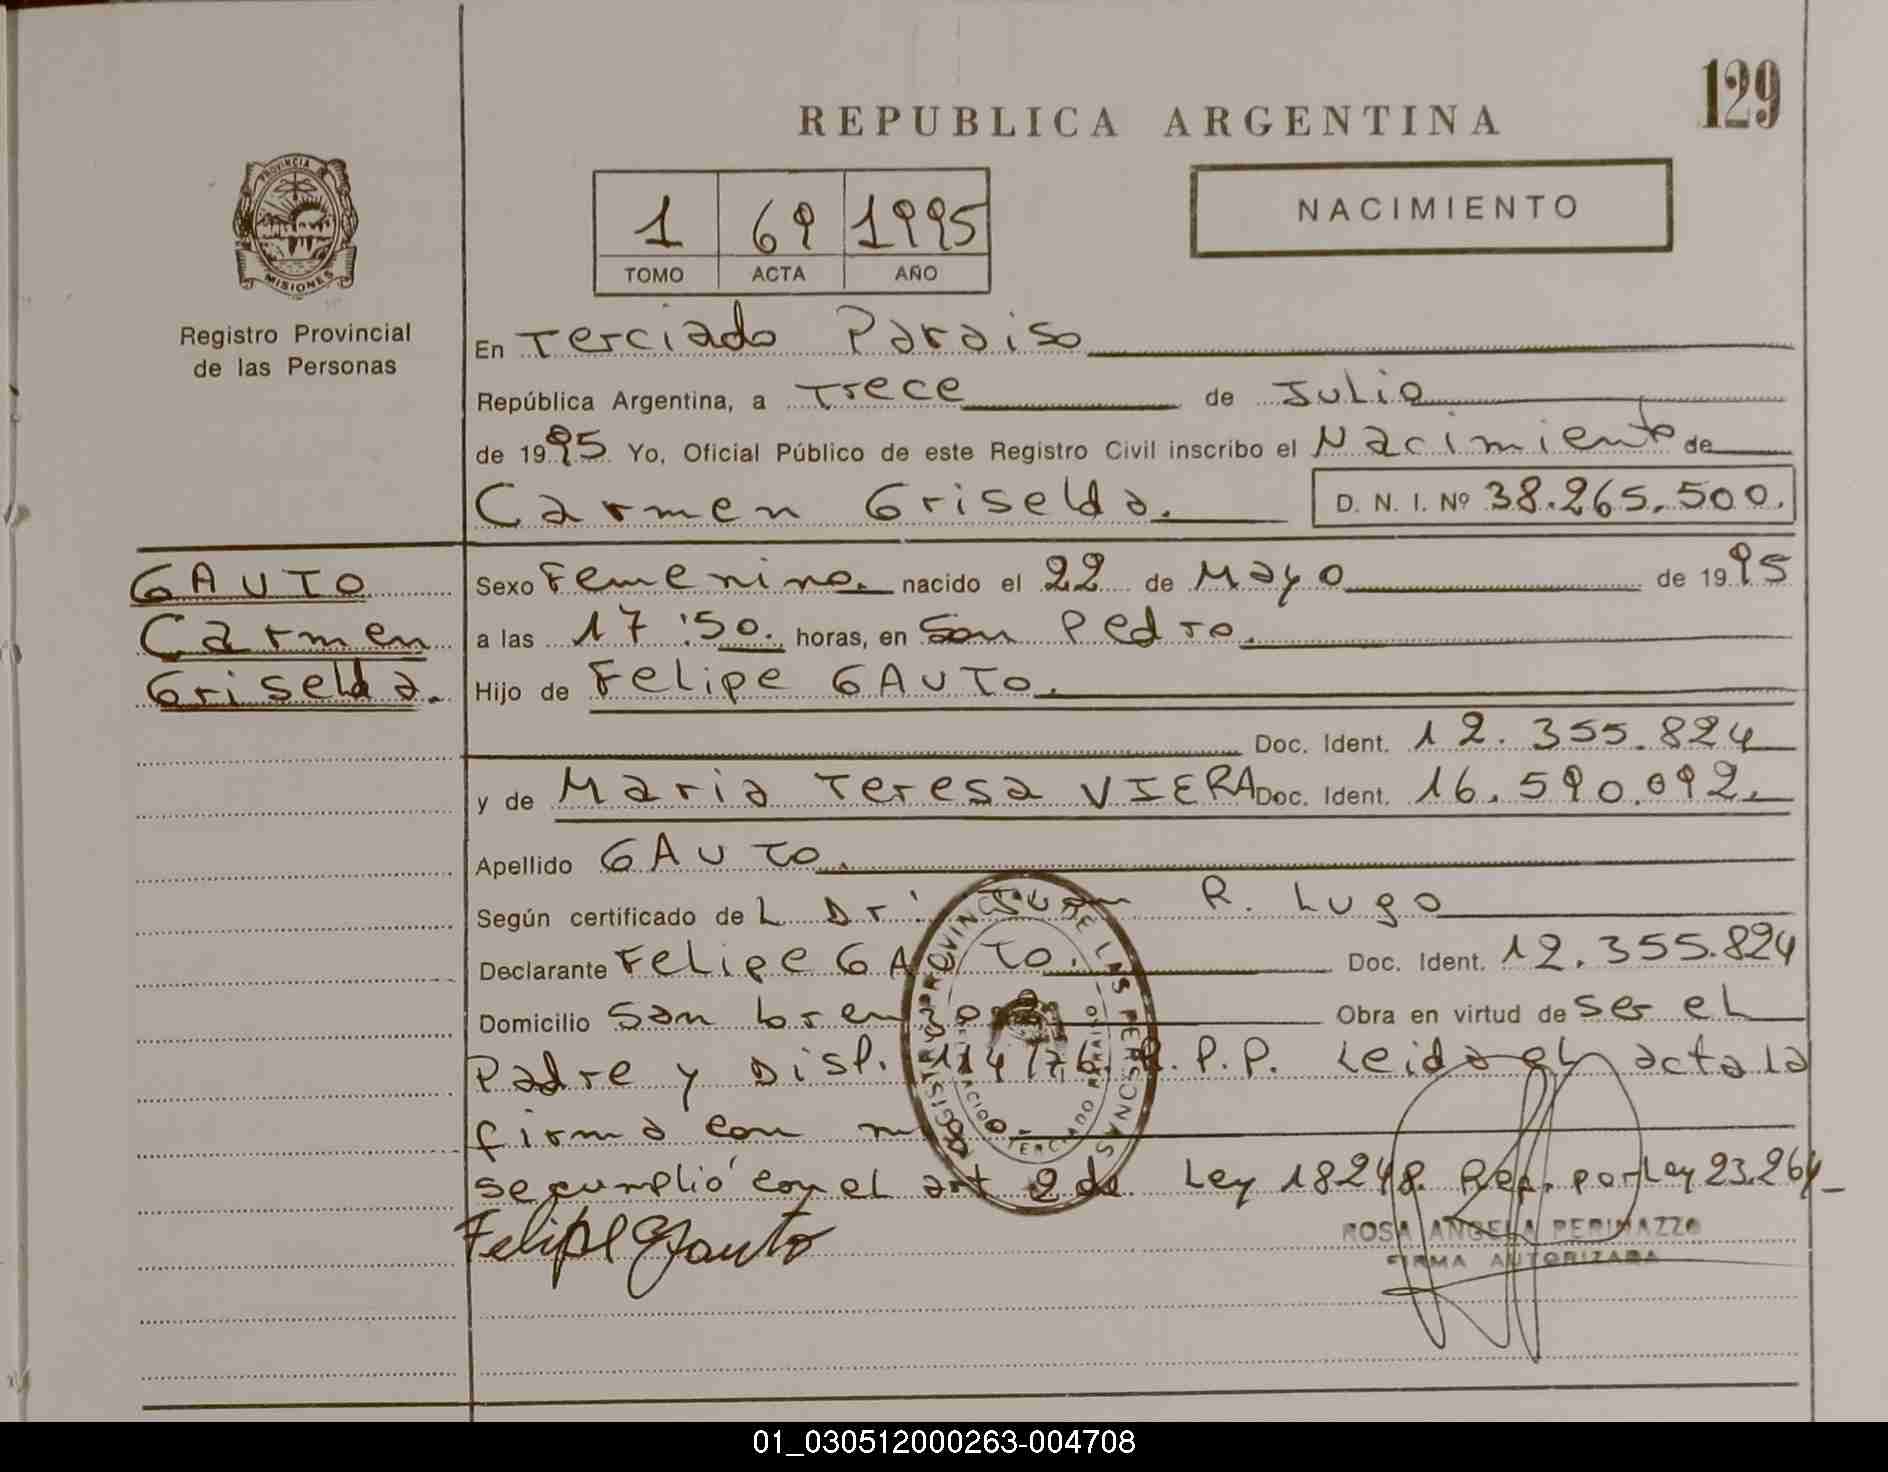 129
REPUBLICA ARGENTINA
PROVINCIA
MISIONES
NACIMIENTO
1 69 1995
TOMO ACTA AÑO
Registro Provincial
de las Personas
En Terciado Paraiso
República Argentina, a Trece de Julio
de 1995 Yo, Oficial Público de este Registro Civil inscribo el Nacimiento de
Carmen Griselda. D. N. I. Nº 38.265.500.
GAUTO
Carmen
Griselda.
Sexo Femenino. nacido el 22 de Mayo de 1995
a las 17:50. horas, en San Pedro.
Hijo de Felipe GAUTO.
Doc. Ident. 12.355.824
y de Maria Teresa VIERA Doc. Ident. 16.590.092.
Apellido GAUTO.
Según certificado de L Dr. Juan R. Lugo
Declarante Felipe GAUTO. Doc. Ident. 12.355.824
Domicilio San Lorenzo Obra en virtud de ser el
Padre y Disp. 114/76. R.P.P. Leida el acta la
firma con
se cumplió con el art 2 de Ley 18248. Rep. por Ley 23.264
Felipe Gauto
ROSA ANGELA PERINAZZO
FIRMA AUTORIZADA
01_030512000263-004708